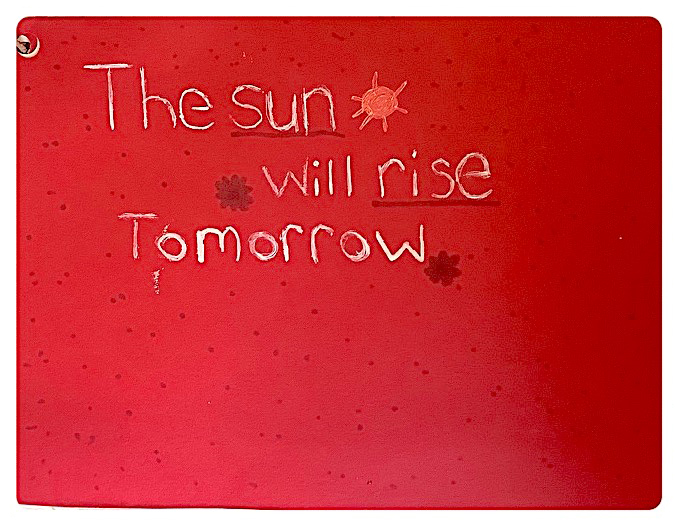 The sun
will rise
Tomorrow